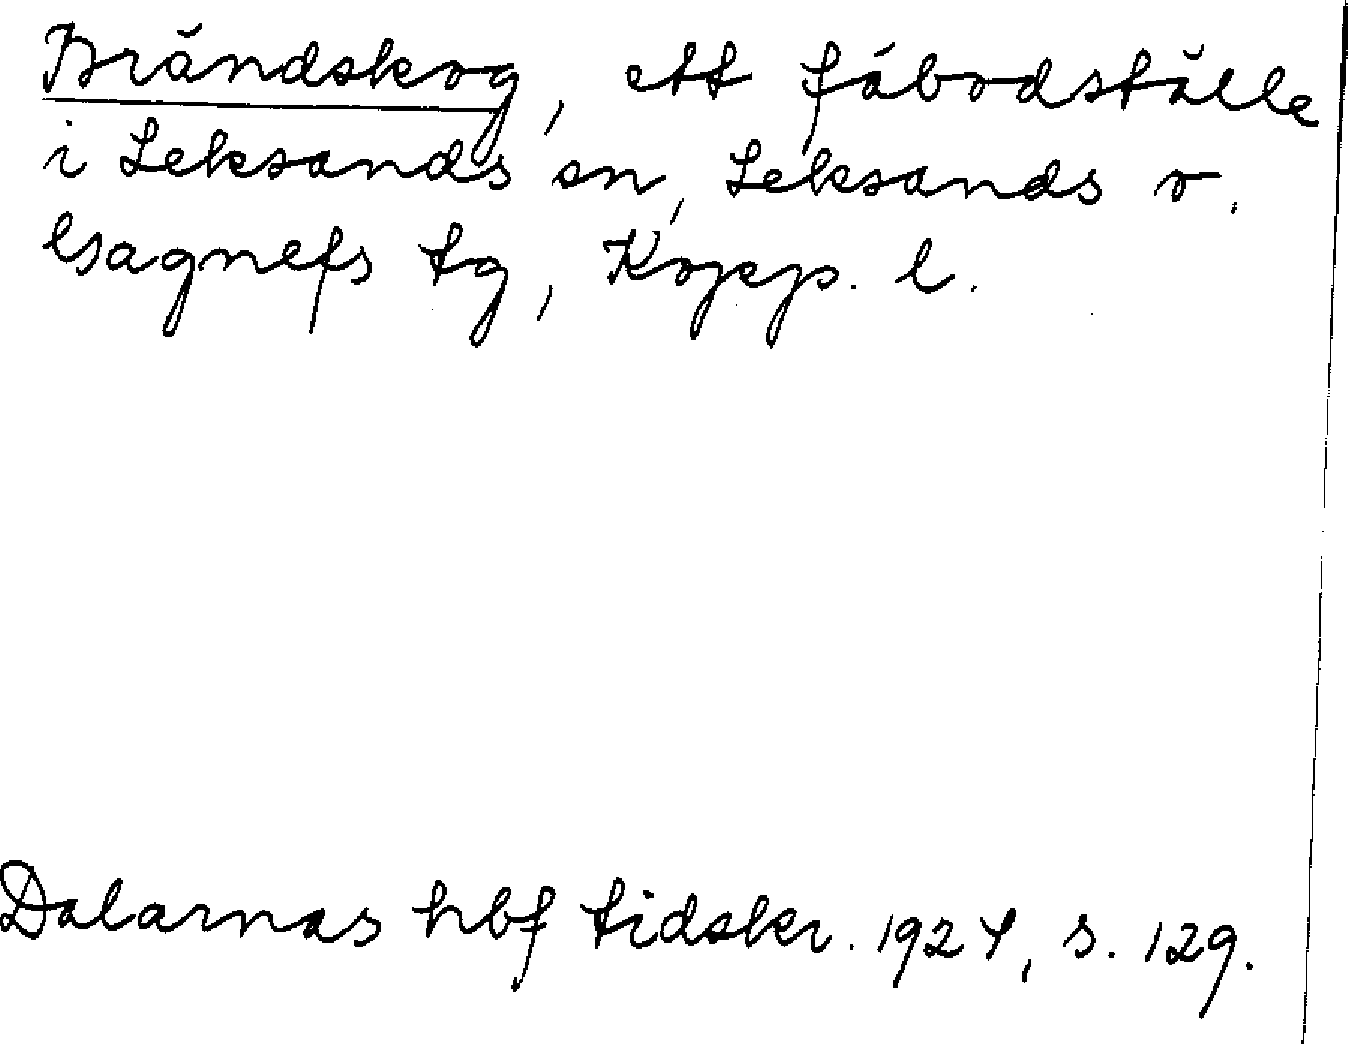 Brändskog, ett fäbodställe
i Leksands sn, Leksands o.
Gagnefs tg, Kopp. l.
Dalarnas hbf tidskr. 1924, s. 129.